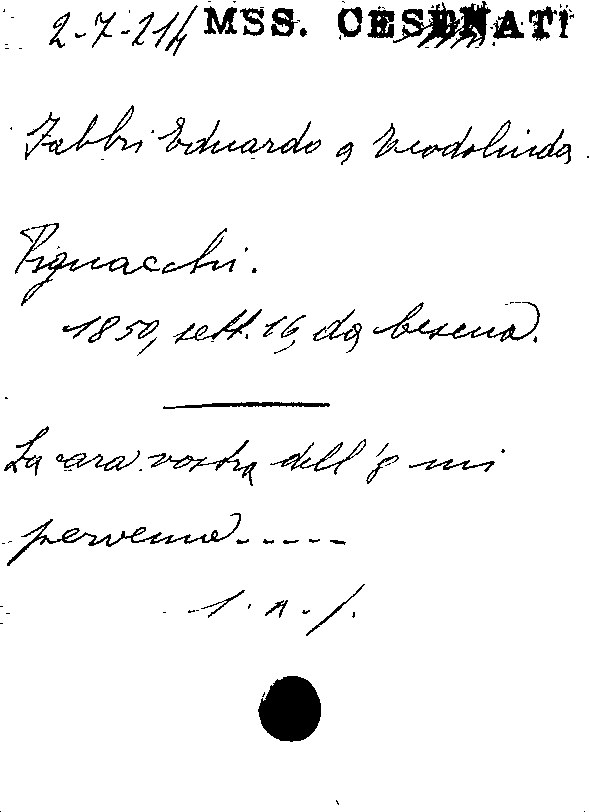 2-7-214 MSS. CESENATI
Fabbri Eduardo a Teodolinda
Pignacchi.
1850, sett. 16, da Cesena.
La cara vostra dell'8 mi
pervenne-----
1. a. f.